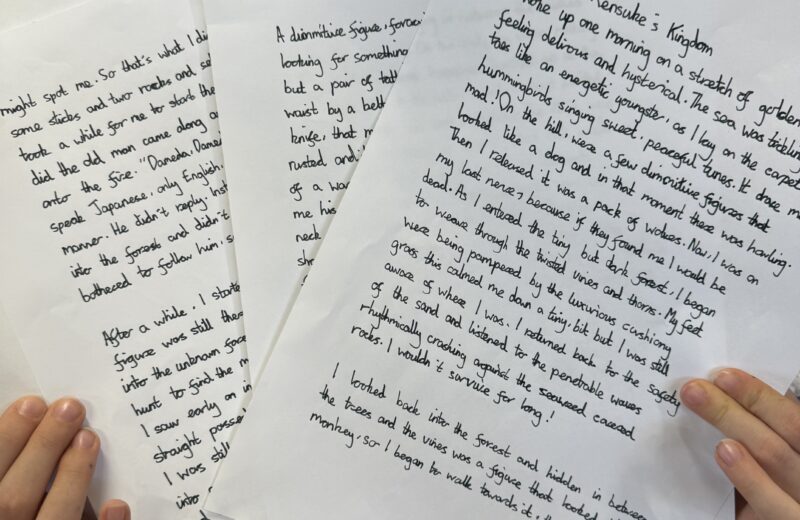 might spot me. So that's what I di
some sticks and two rocks and se
took a while for me to start the
did the old man came along a
onto the fire. "Dameda. Dame
speak Japanese, only English,
manner. He didn't reply. Inst
into the forest and didn't
bothered to follow him, s
After a while, I starte
figure was still ther
into the unknown fore
hunt to find the m
I saw early on in
straight passed
I was still
into
A dimmitive figure, forow
looking for something
but a pair of tatt
waist by a belt
knife, that m
rusted and
of a wa
me his
neck
sh
Kensuke's Kingdom
woke up one morning on a stretch of golden
feeling delirous and hysterical. The sea was tickling
toes like an energetic youngster, as I lay on the carpet
hummingbirds singing sweet, peaceful tunes. It drove m
mad! On the hill, were a few dimmitive figures that
looked like a dog and in that moment there was howling.
Then I released it was a pack of wolves. Now, I was on
my last nerve, because if they found me I would be
dead. As I entered the tiny but dark forest, I began
to weave through the twisted vines and thorns. My feet
were being pampered by the luxurious cushiony
grass this calmed me down a tiny, bit but I was still
aware of where I was. I returned back to the safety
of the sand and listened to the penetrable waves
rhythmically crashing against the seaweed covered
rocks. I wouldn't survive for long!
I looked back into the forest and hidden in between
the trees and the vines was a figure that looked
monkey, so I began to walk towards it,